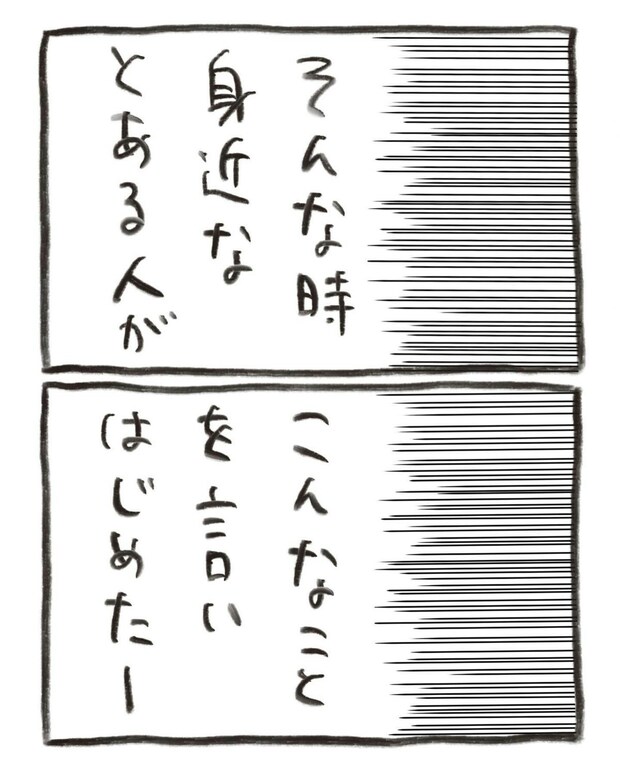 そんな時
身近な
とある人が
こんなこと
を言い
はじめたー